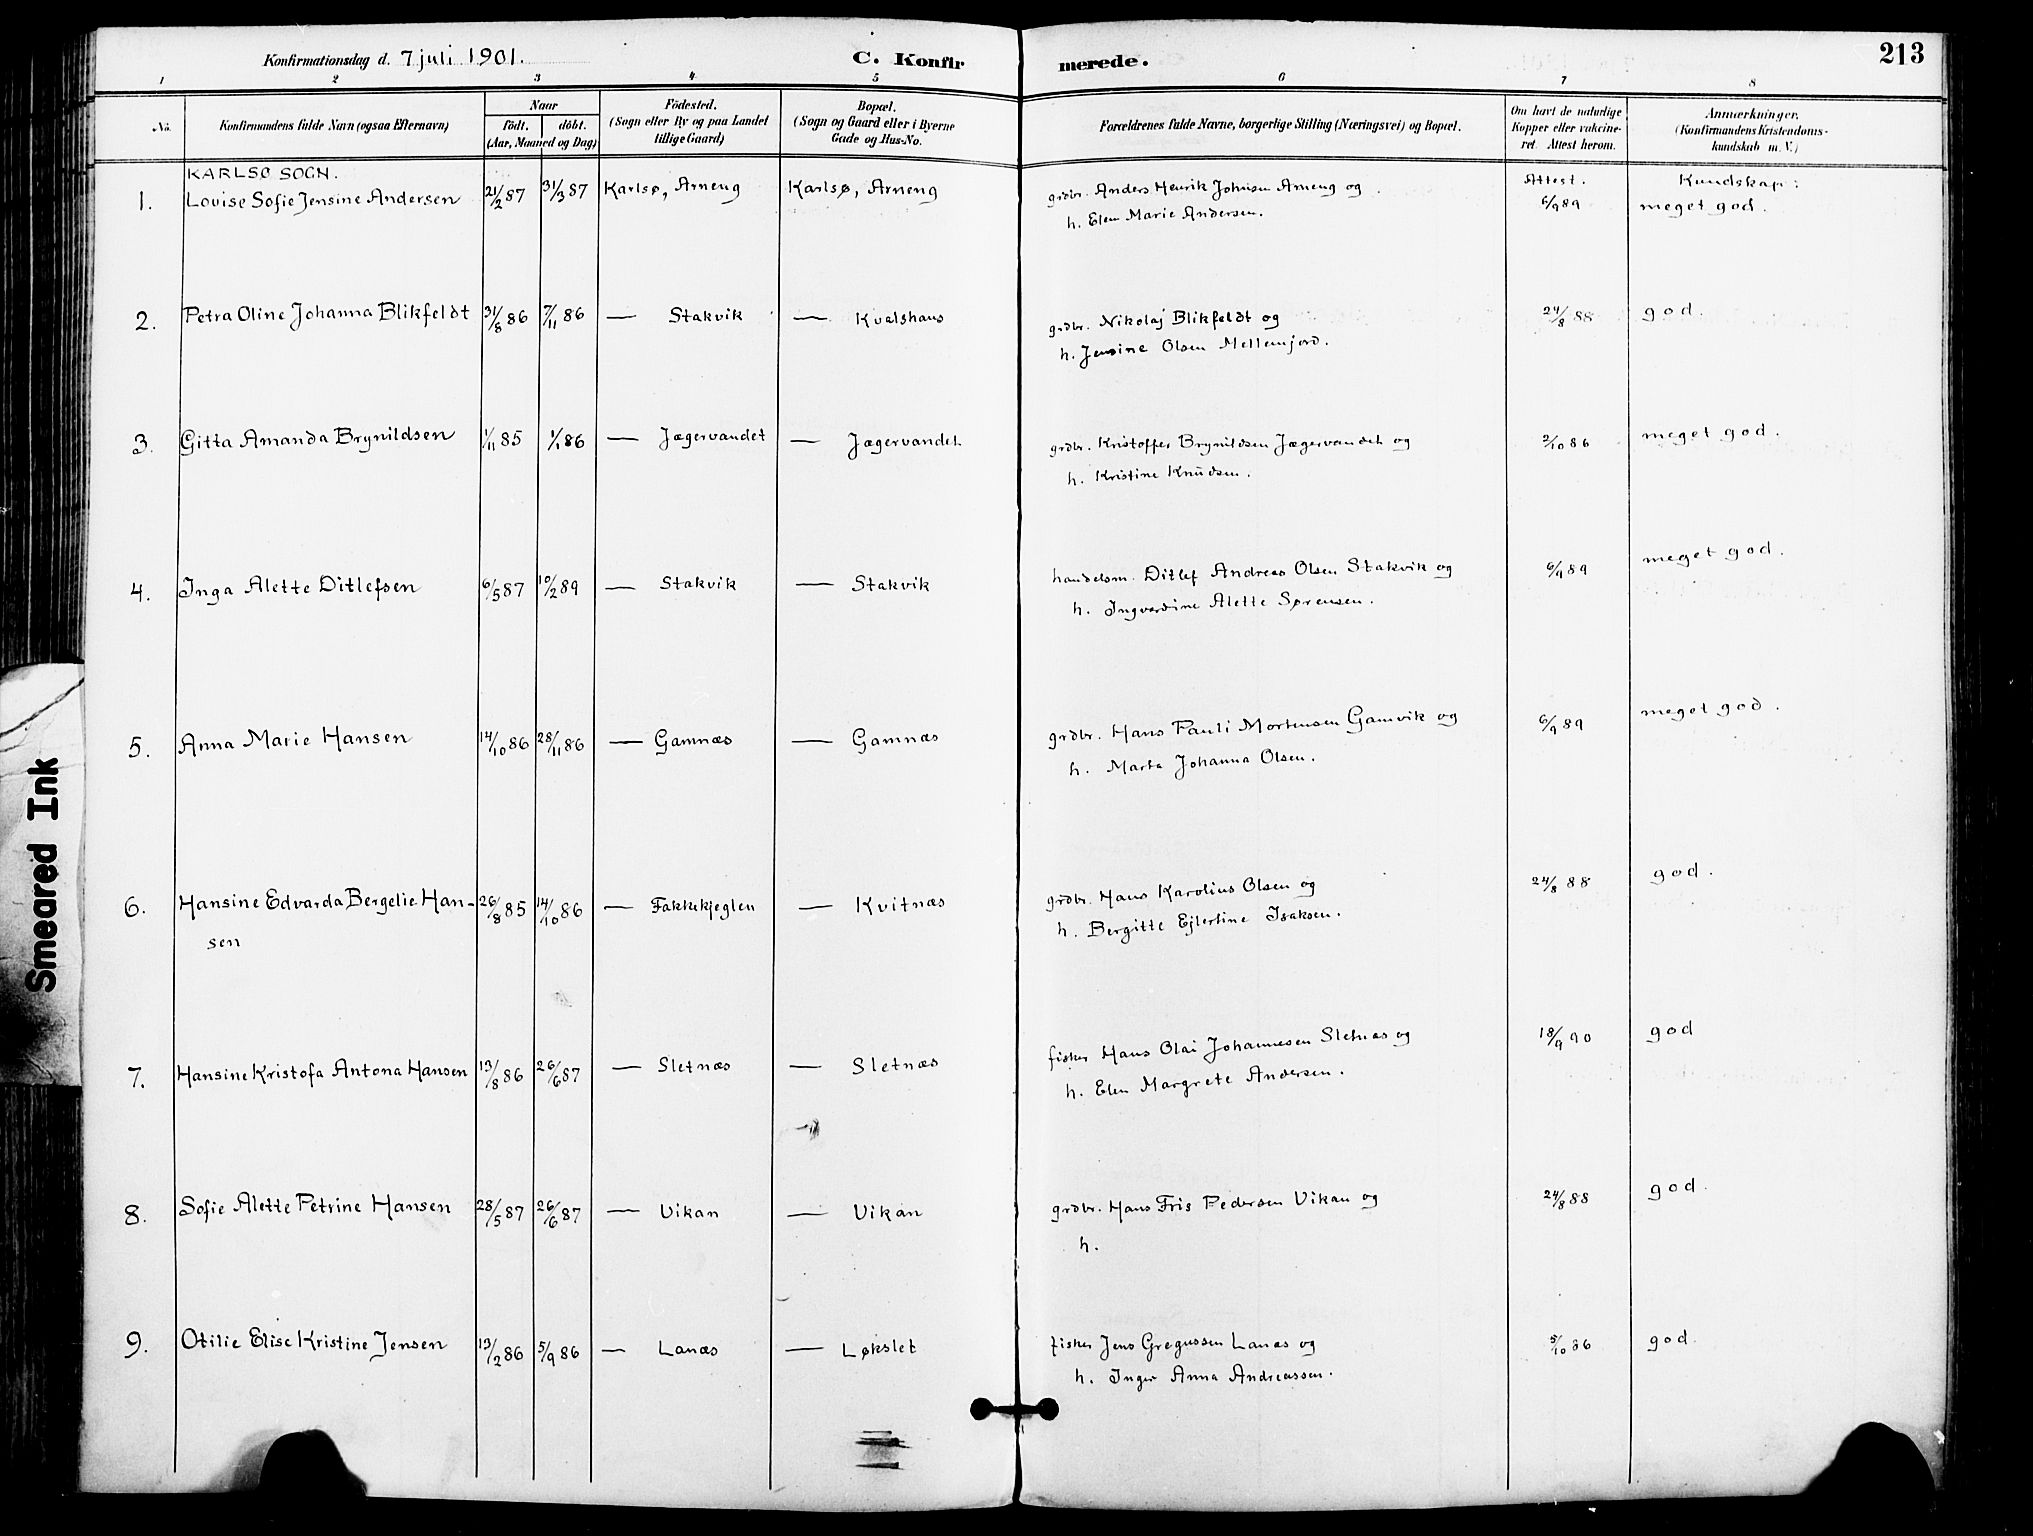 Konfirmationsdag d. 7 juli 1901.
C. Konfirmerede.
213
1 2 3 4 5 6 7 8
No.
Konfirmandens fulde Navn (ogsaa Efternavn)
Naar
födt. döbt.
(Aar, Maaned og Dag)
Födested.
(Sogn eller By og paa Landet
tillige Gaard)
Bopæl.
(Sogn og Gaard eller i Byerne
Gade og Hus-No.
Forældrenes fulde Navne, borgerlige Stilling (Næringsvei) og Bopæl.
Om havt de naturlige
Kopper eller vakcine-
ret. Attest herom.
Anmærkninger.
(Konfirmandens Kristendoms-
kundskab m. V.)
KARLSØ SOGN.
Attest. Kundskap:
1. Lovise Sofie Jensine Andersen 21/2 87 31/3 87 Karlsø, Arneng Karlsø, Arneng grdbr. Anders Henrik Johnsen Arneng og 6/9 89 meget god.
h. Elen Marie Andersen.
2. Petra Oline Johanna Blikfeldt 31/8 86 7/11 86 — Stakvik — Kvalshaus grdbr. Nikolaj Blikfeldt og 24/8 88 god.
h. Jensine Olsen Mellemjord.
3. Gitta Amanda Brynildsen 1/11 85 1/1 86 — Jægervandet — Jægervandet grdbr. Kristoffer Brynildsen Jægervandet og 2/10 86 meget god.
h. Kristine Knudsen.
4. Inga Alette Ditlefsen 6/5 87 10/2 89 — Stakvik — Stakvik handelsm. Ditlef Andreas Olsen Stakvik og 6/9 89 meget god.
h. Ingvardine Alette Sørensen.
5. Anna Marie Hansen 14/10 86 28/11 86 — Gamnæs — Gamnæs grdbr. Hans Pauli Mortensen Gamvik og 6/9 89 meget god.
h. Marta Johanna Olsen.
6. Hansine Edvarda Bergelie Han- 26/8 85 14/10 86 — Fakkekjeglen — Kvitnæs grdbr. Hans Karolius Olsen og 24/8 88 god.
sen h. Bergitte Ejlertine Isaksen.
7. Hansine Kristofa Antona Hansen 13/8 86 26/6 87 — Sletnæs — Sletnæs fisker Hans Olai Johannesen Sletnæs og 18/9 90 god
h. Elen Margrete Andersen.
8. Sofie Alette Petrine Hansen 28/5 87 26/6 87 — Vikan — Vikan grdbr. Hans Fris Pedersen Vikan og 24/8 88 god.
h.
9. Otilie Elise Kristine Jensen 13/2 86 5/9 86 — Lanæs — Løkslet fisker Jens Gregussen Lanæs og 5/10 86 god.
h. Inger Anna Andreassen.
Smeared Ink